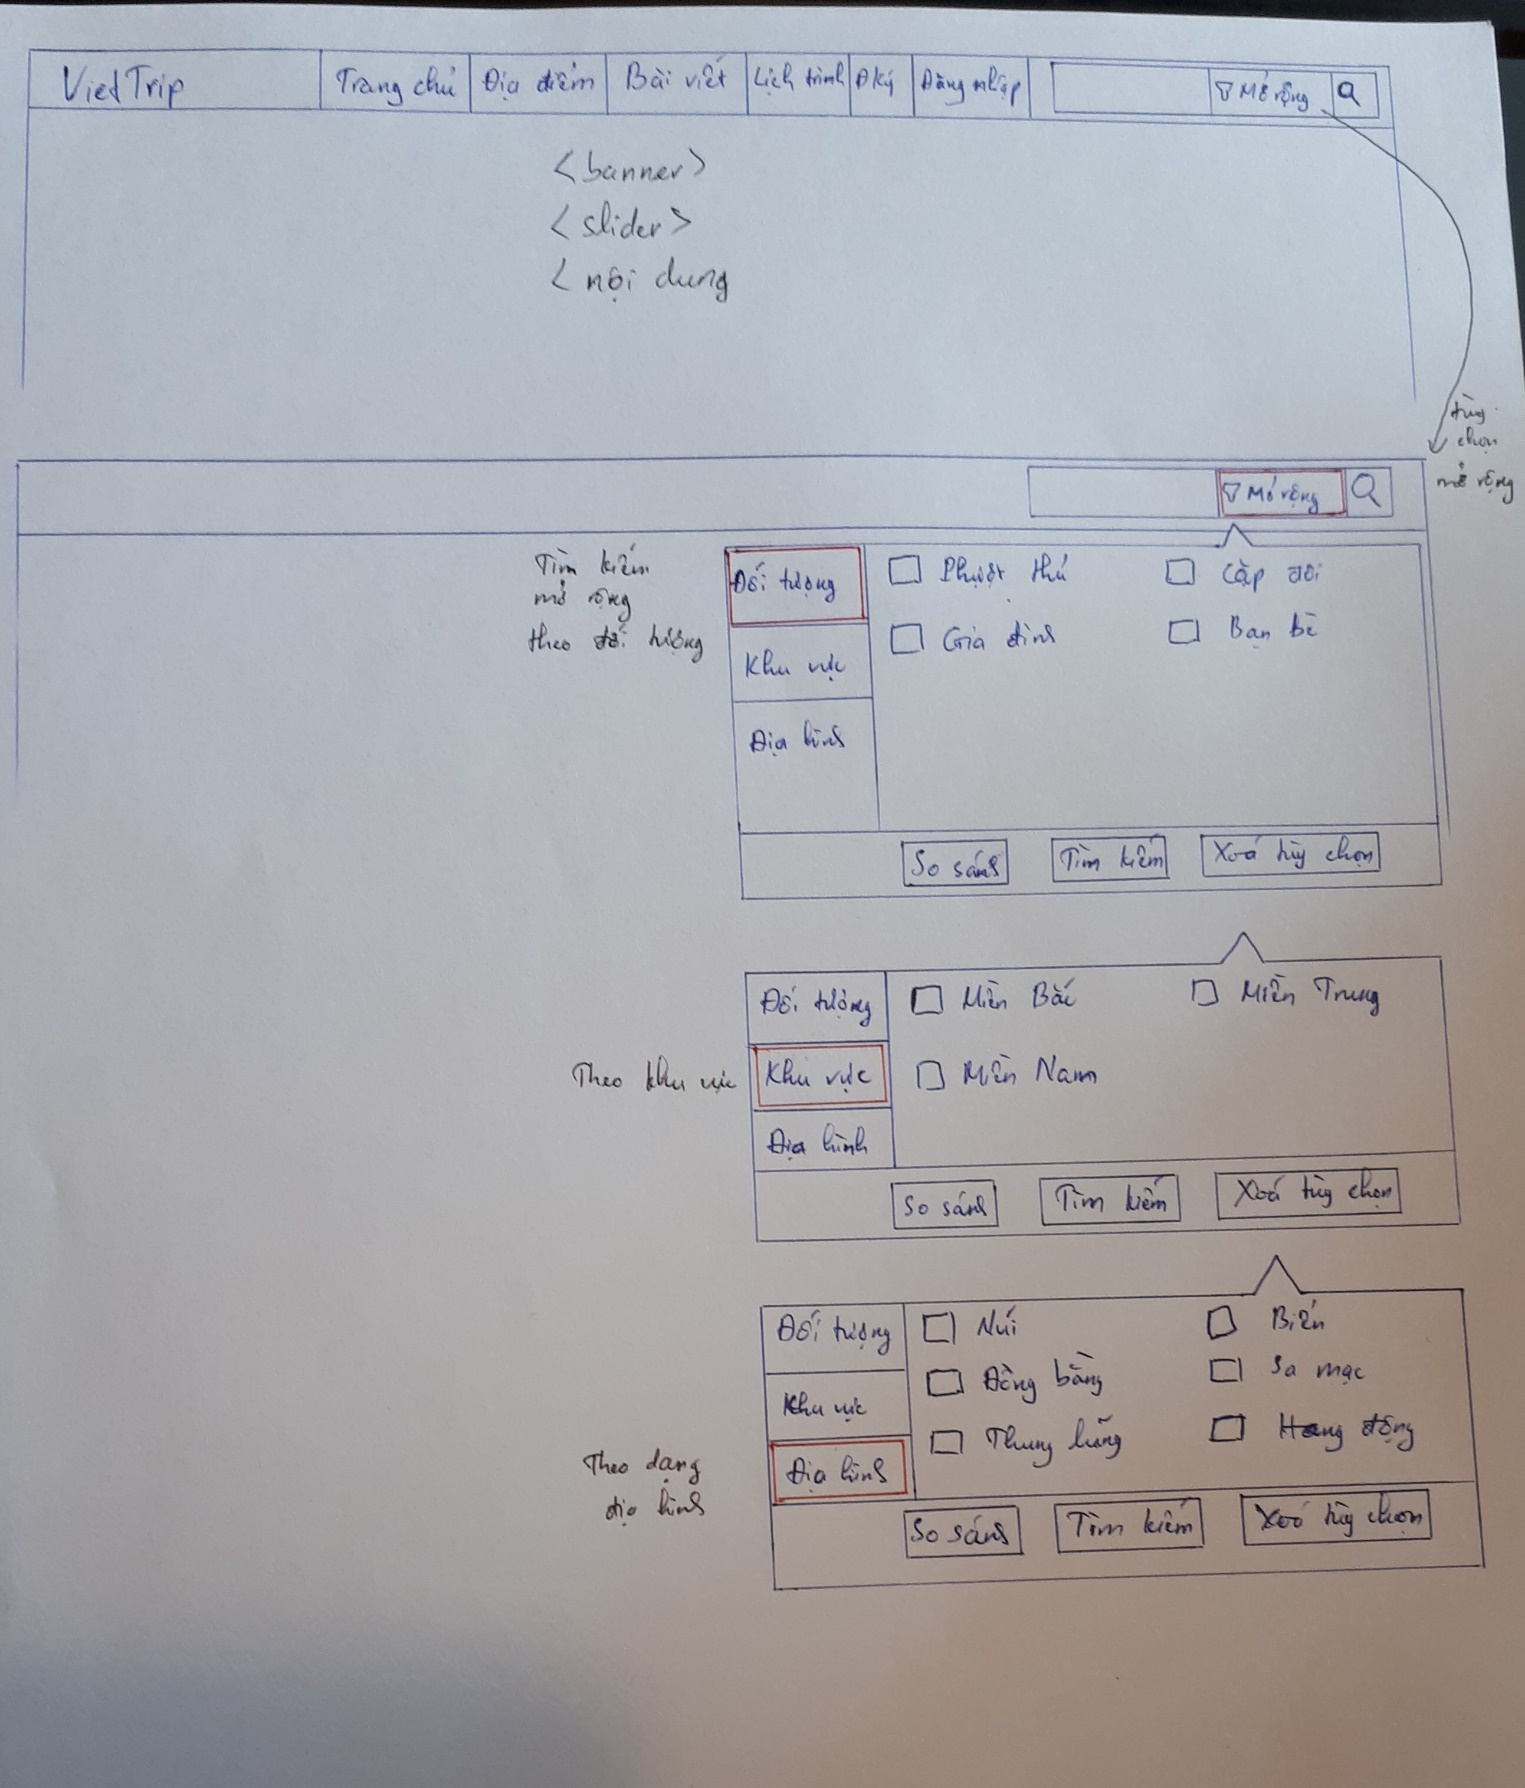 VietTrip Trang chủ Địa điểm Bài viết Lịch trình Đ Ký Đăng nhập Mở rộng
<banner>
<slider>
<nội dung
tùy
chọn
mở rộng
Mở rộng
Tìm kiếm
mở rộng
theo đối tượng
Đối tượng
Khu vực
Địa hình
Phượt thủ
Cặp đôi
Gia đình
Bạn bè
So sánh Tìm kiếm Xoá tùy chọn
Theo khu vực
Đối tượng
Khu vực
Địa hình
Miền Bắc
Miền Trung
Miền Nam
So sánh Tìm kiếm Xoá tùy chọn
Theo dạng
địa hình
Đối tượng
Khu vực
Địa hình
Núi
Biển
Đồng bằng
Sa mạc
Thung lũng
Hang động
So sánh Tìm kiếm Xoá tùy chọn